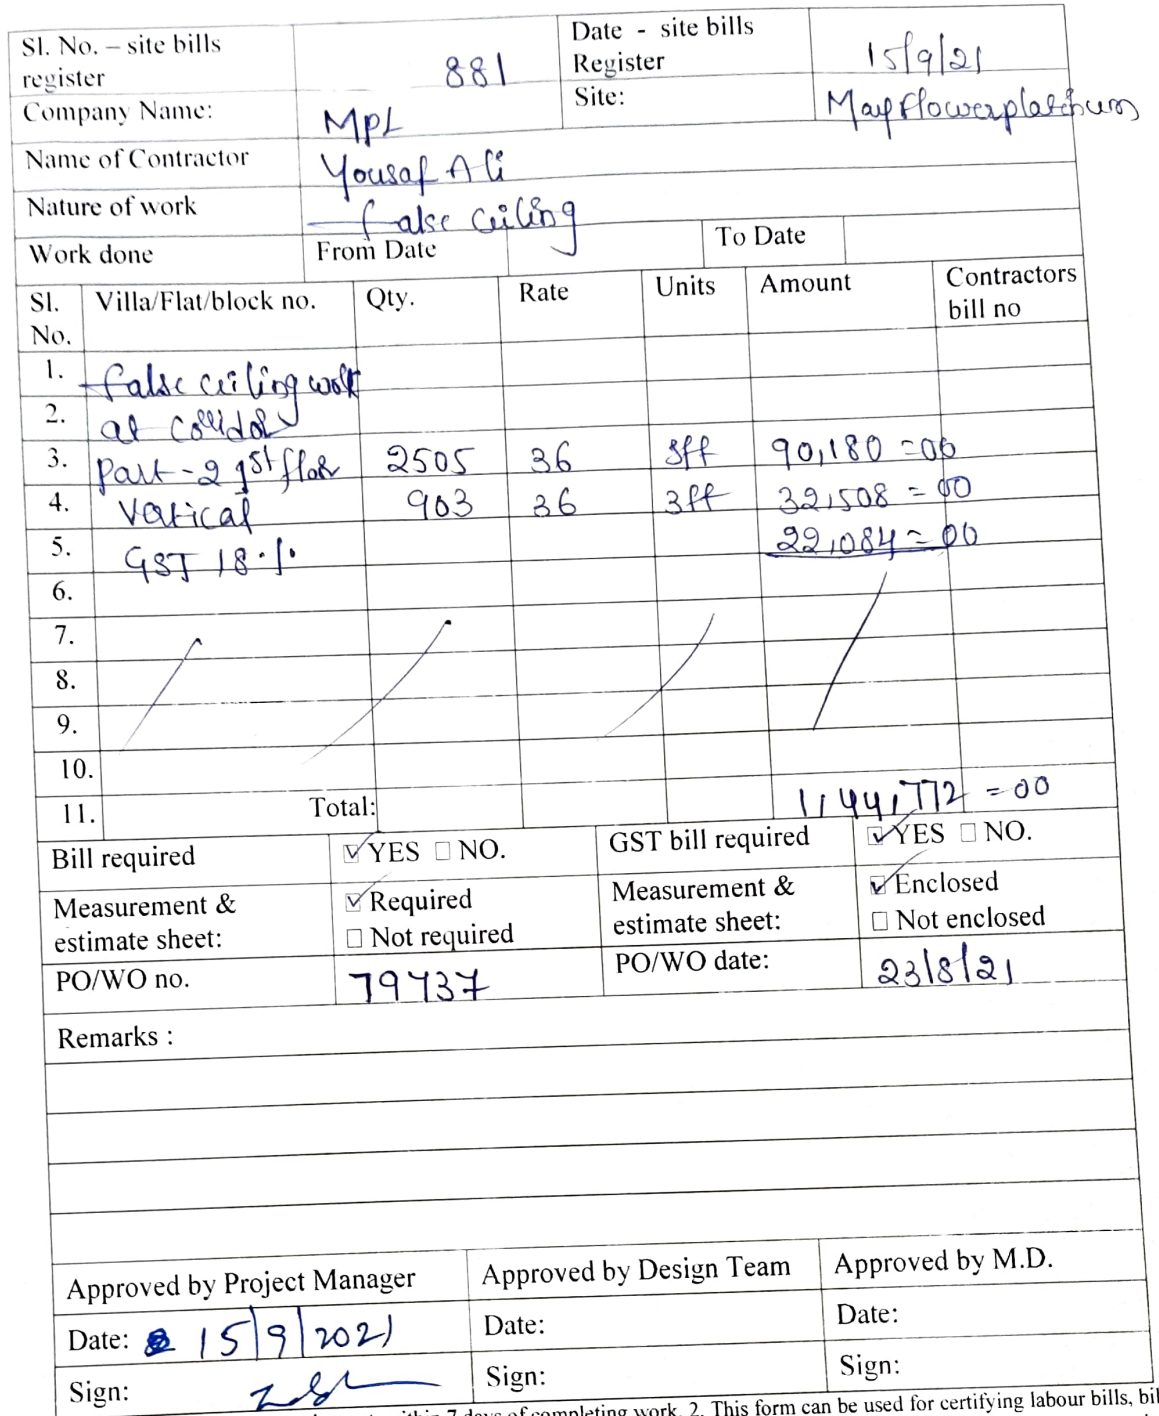 Sl. No. – site bills register 881 Date - site bills Register 15/9/21
Company Name: MPL Site: Mayflowerplatinum
Name of Contractor Yousaf Ali
Nature of work False ceiling
Work done From Date To Date
Sl. No. Villa/Flat/block no. Qty. Rate Units Amount Contractors bill no
1. False ceiling work
2. at Corridor
3. Part-2 1st floor 2505 36 sft 90,180=00
4. Vertical 903 36 sft 32,508=00
5. GST 18% 22,084=00
6.
7.
8.
9.
10.
11. Total: 1,44,772=00
Bill required ☑ YES ☐ NO. GST bill required ☑ YES ☐ NO.
Measurement & estimate sheet: ☑ Required ☐ Not required Measurement & estimate sheet: ☑ Enclosed ☐ Not enclosed
PO/WO no. 79737 PO/WO date: 23/8/21
Remarks :
Approved by Project Manager Approved by Design Team Approved by M.D.
Date: 15/9/2021 Date: Date:
Sign: Sign: Sign:
7 days of completing work. 2. This form can be used for certifying labour bills, bil